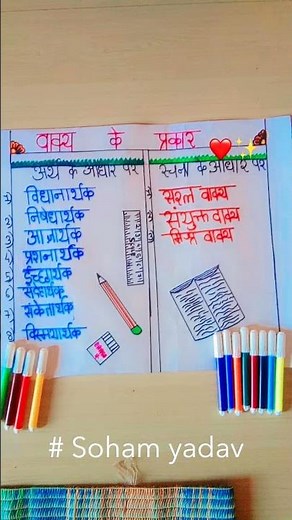 वाक्य के प्रकार
अर्थ के आधार पर
विधानार्थक
निषेधार्थक
आज्ञार्थक
प्रश्नार्थक
इच्छार्थक
संकेतार्थक
विस्मयार्थक
रचना के आधार पर
सरल वाक्य
संयुक्त वाक्य
मिश्र वाक्य
# Soham yadav